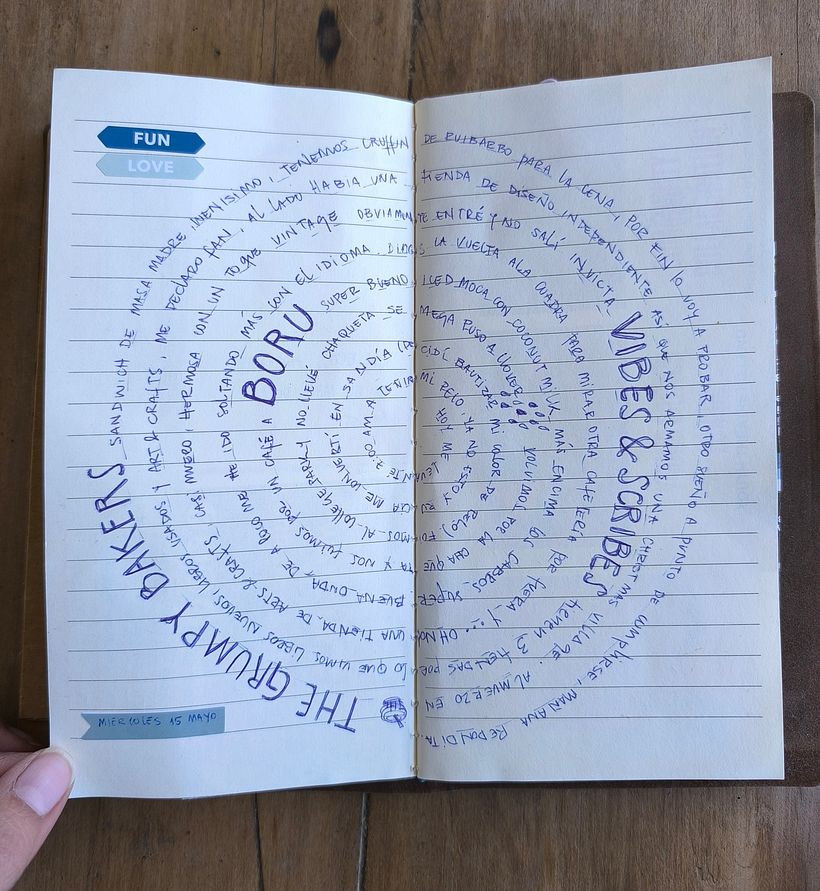 FUN
LOVE
HOY ME LEVANTÉ 7:00 AM A TEÑIR MI PELO YA NO ESTOY
RUCIA ME CONVERTÍ EN SANDÍA (DECIDÍ BAUTIZAR MI COLOR DE PELO)
FUIMOS AL COLLEGE PARK Y NO LLEVÉ CHAQUETA SE MEGA PUSO A LLOVER VOLVIMOS POR LA CHA QUE
TA Y NOS FUIMOS POR UN CAFÉ A BORU SUPER BUENO ICED MOCA CON COCONUT MILK MÁS ENCIMA LOS CABROS SUPER
BUENA ONDA, DE A POCO ME HE IDO SOLTANDO MÁS CON EL IDIOMA. DIMOS LA VUELTA A LA CUADRA PARA MIRAR OTRA CAFETERÍA POR FUERA Y... OH NO!
UNA TIENDA DE ARTS & CRAFTS CASI MUERO, HERMOSA CON UN TOQUE VINTAGE OBVIAMENTE ENTRÉ Y NO SALÍ INVICTA VIBES & SCRIBES TIENEN 3 TIENDAS POR
LO QUE VIMOS LIBROS NUEVOS, LIBROS USADOS Y ART & CRAFTS, ME DECLARO FAN, AL LADO HABIA UNA TIENDA DE DISEÑO INDEPENDIENTE ASÍ QUE NOS ARMAMOS UNA CHRISTMAS VILLAGE. ALMUERZO EN
THE GRUMPY BAKERS SANDWICH DE MASA MADRE, WENISIMO, TENEMOS CRUFFIN DE RUIBARBO PARA LA CENA, POR FIN LO VOY A PROBAR, OTRO SUEÑO A PUNTO DE CUMPLIRSE, MAÑANA REPONDITA.
MIERCOLES 15 MAYO